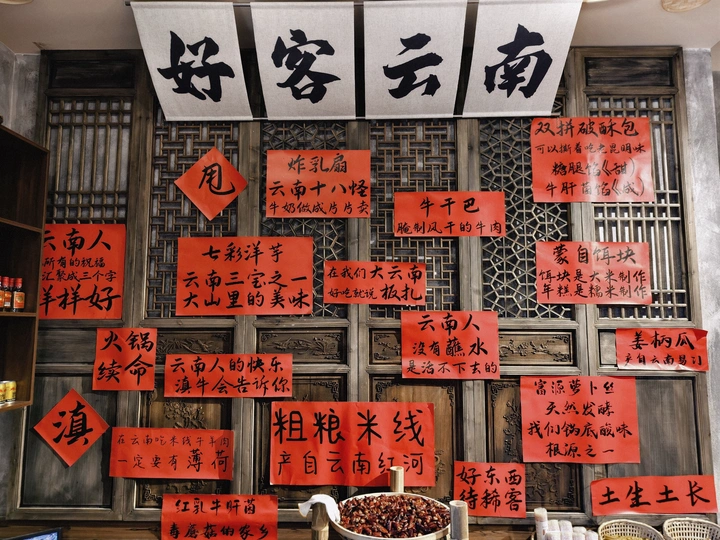 好客云南
双拼破酥包
可以撕着吃老昆明味
糖腿馅(甜)
牛肝菌馅(咸)
甩
炸乳扇
云南十八怪
牛奶做成片片卖
牛干巴
腌制风干的牛肉
云南人
所有的祝福
汇聚成三个字
羊样好
七彩洋芋
云南三宝之一
大山里的美味
在我们大云南
好吃就说板扎
蒙自饵块
饵块是大米制作
年糕是糯米制作
火锅
续命
云南人的快乐
滇牛会告诉你
云南人
没有蘸水
是活不下去的
姜柄瓜
产自云南易门
滇
在云南吃米线干牛肉
一定要有薄荷
粗粮米线
产自云南红河
富源萝卜丝
天然发酵
我们锅底酸味
根源之一
好东西
待稀客
土生土长
红乳牛肝菌